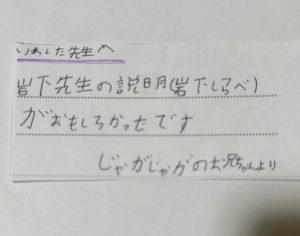 いわした先生へ
岩下先生の説明(岩下しらべ)
がおもしろかったです
じゃがじゃがのお兄ちゃんより